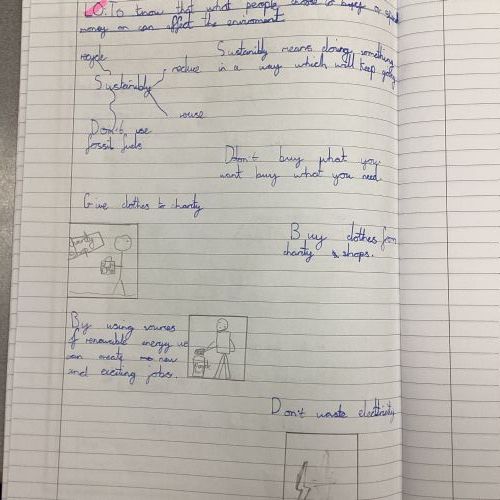 L.O. To know that what people choose to
money on can affect the enviroment
recycle
Sustainibly means doing something
reduce
in a way which will keep going
Sustainibly
reuse
Don't use
fossil fuels
Don't buy what you
want buy what you need.
Give clothes to charity
charity
shop
Buy clothes from
charity shops.
By using sources
of renewable energy we
can create new
and exciting jobs.
Don't waste electricity